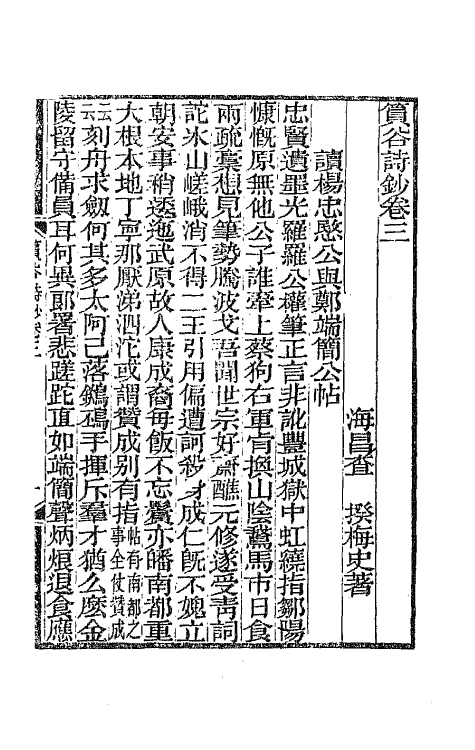 篔谷詩鈔卷三
海昌查　揆梅史著
讀楊忠愍公與鄭端簡公帖
忠賢遺墨光羅羅公攘筆正言非訛豐城獄中虹繞指鄒陽
慷慨原無他公子誰牽上蔡狗右軍肯換山陰鵞馬市日食
兩疏稾想見筆勢騰波戈吾聞世宗好齋醮元修遂受靑詞
詑氷山嵯峨消不得二王引用偏遭訶殺身成仁旣不媿立
朝安事稍逶迤武原故人康成裔每飯不忘鬢亦皤南都重
大根本地丁寧那厭涕泗沱或謂贊成别有指帖有南都之事全仗贊成
云云刻舟求劔何其多太阿已落鵂鶹手揮斥羣才猶么麽金
陵留守備員耳何異郎署悲蹉跎直如端簡聲炳烺退食應
篔谷詩鈔卷三　一